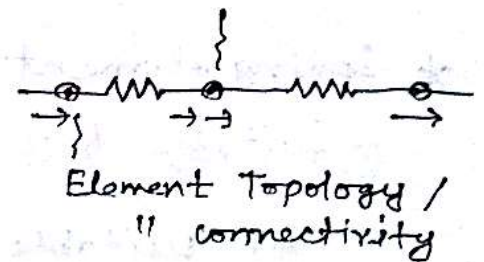 Element Topology /
" connectivity